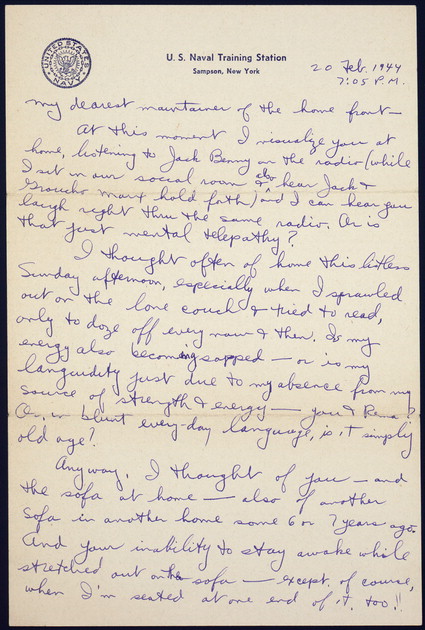 UNITED STATES NAVY
U. S. Naval Training Station
Sampson, New York
20 Feb. 1944
7:05 P.M.
My dearest maintainer of the home front—
At this moment I visualize you at
home, listening to Jack Benny on the radio (while
I sit in our social room & also hear Jack &
Groucho Marx hold forth) and I can hear you
laugh right thru the same radio. Or is
that just mental telepathy?
I thought often of home this listless
Sunday afternoon, especially when I sprawled
out on the lone couch & tried to read,
only to doze off every now & then. Is my
energy also becoming sapped — or is my
languidity just due to my absence from my
source of strength & energy — you & Rena?
Or, in blunt every-day language, is it simply
old age?
Anyway, I thought of you — and
the sofa at home — also of another
sofa in another home some 6 or 7 years ago.
And your inability to stay awake while
stretched out on the sofa — except, of course,
when I'm seated at one end of it, too!!